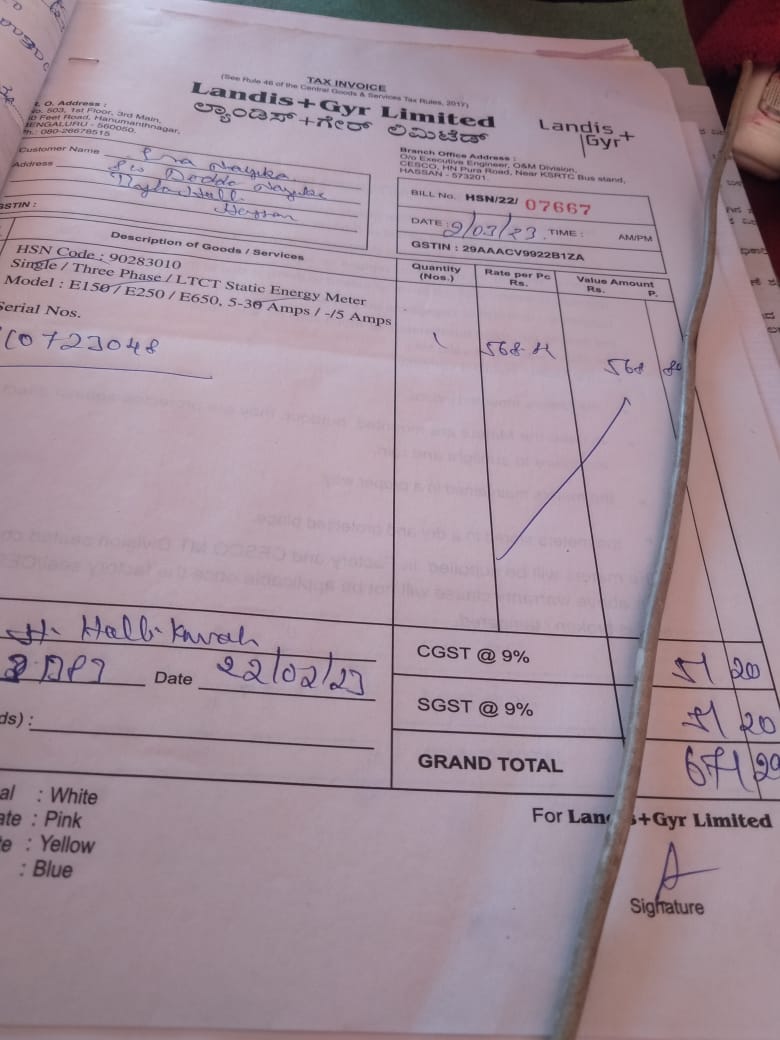 TAX INVOICE
(See Rule 46 of the Central Goods & Services Tax Rules, 2017)
Landis+Gyr Limited
ಲ್ಯಾಂಡಿಸ್+ಗೇರ್ ಲಿಮಿಟೆಡ್
Landis+
Gyr
. O. Address :
o. 503, 1st Floor, 3rd Main,
0 Feet Road, Hanumanthnagar,
ENGALURU - 560050.
h.: 080-26678518
Branch Office Address :
O/o Executive Engineer, O&M Division,
CESCO, HN Pura Road, Near KSRTC Bus stand,
HASSAN - 573201.
Customer Name Nayaka
Address S/o Dodda Nayaka
Hassan
GSTIN :
BILL No. HSN/22/ 07667
DATE : 2/03/23 TIME : AM/PM
GSTIN : 29AAACV9922B1ZA
Description of Goods / Services
Quantity (Nos.)
Rate per Pc Rs.
Value Amount Rs. P.
HSN Code : 90283010
Single / Three Phase / LTCT Static Energy Meter
Model : E150 / E250 / E650, 5-30 Amps / -/5 Amps
Serial Nos.
10723048
1
568 80
Date 22/02/23
ds) :
CGST @ 9% 51 20
SGST @ 9% 51 20
GRAND TOTAL 671 20
al : White
ate : Pink
te : Yellow
: Blue
For Landis+Gyr Limited
Signature